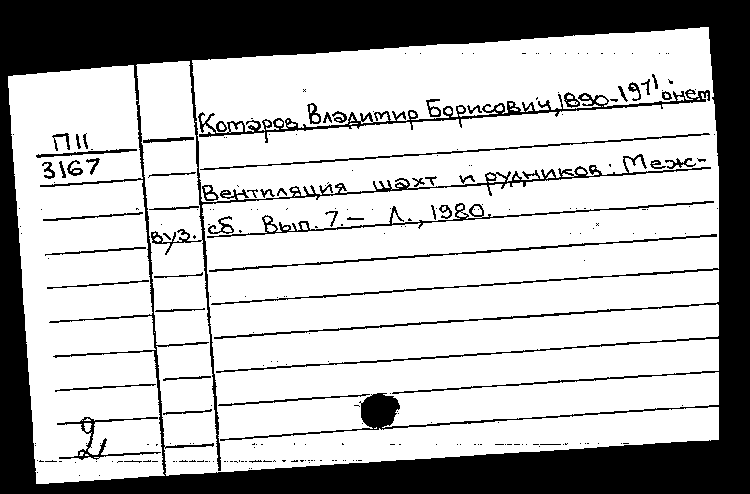 Комаров, Владимир Борисович, 1890-1971, о нем.
П11
3167
Вентиляция шахт и рудников: Меж-
вуз. сб. Вып. 7.— Л., 1980.
2